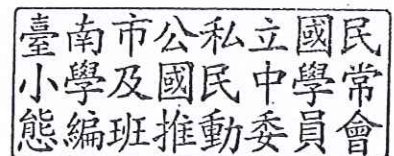 臺南市公私立國民
小學及國民中學常
態編班推動委員會